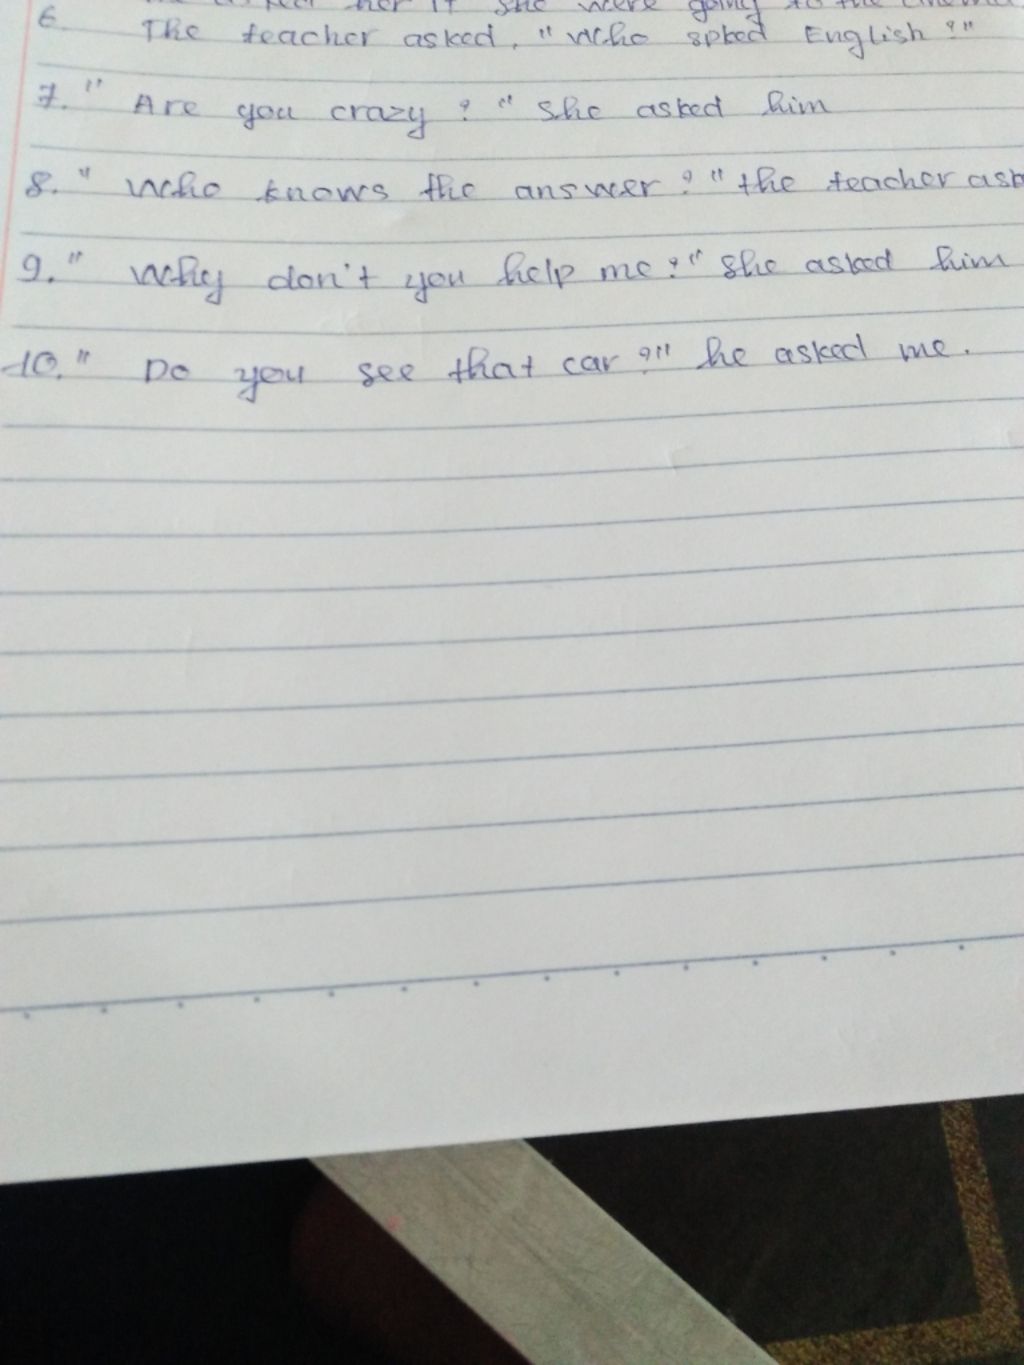 her if she were going to the
6. The teacher asked, "Who spked English?"
7. "Are you crazy?" she asked him
8. "Who knows the answer?" the teacher ask
9. "Why don't you help me?" She asked him
10. "Do you see that car?" he asked me.